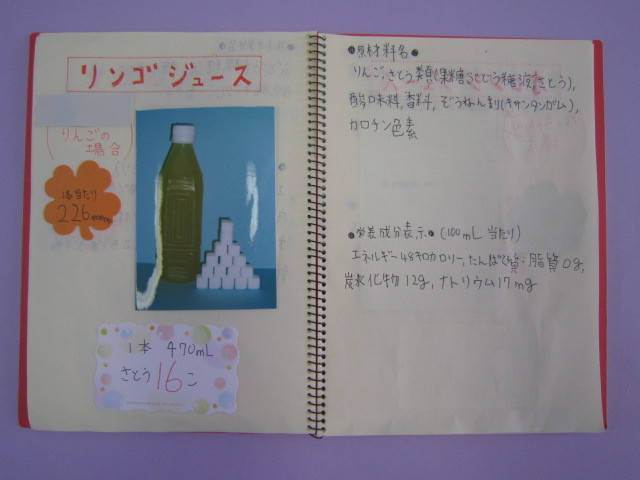 リンゴジュース
(りんごの
場合)
1本当たり
226キロカロリー
1本 470mL
さとう16こ
●原材料名●
りんご,さとう類(果糖ぶどう糖液,さとう),
酸味料,香料,ぞうねん剤(キサンタンガム),
カロチン色素
●栄養成分表示●(100mL当たり)
エネルギー48キロカロリー,たんぱく質・脂質0g,
炭水化物12g,ナトリウム17mg